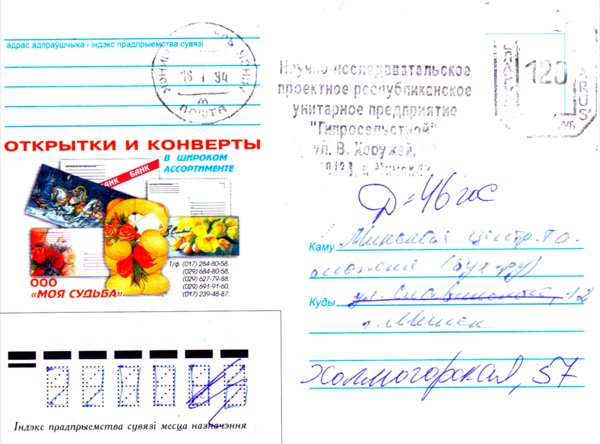 адрас адпраўшчыка і індэкс прадпрыемства сувязі
МІНСК
16 1 94
ПОШТА
Научно-исследовательское
проектное республиканское
унитарное предприятие
"Гипросельстрой"
ул. В. Хоружей,
120
BELARUS
РУБ
ОТКРЫТКИ И КОНВЕРТЫ
В ШИРОКОМ
АССОРТИМЕНТЕ
БАНК
Т/ф (017) 284-80-58,
(029) 684-80-58,
(029) 627-79-88,
(029) 691-91-60,
(017) 239-48-87.
ООО
«МОЯ СУДЬБА»
Д=46 гос
Каму Минская центр. та-
можня
Куды ул.
г. Минск
Холмогорская, 57
2200
Індэкс прадпрыемства сувязі месца назначэння